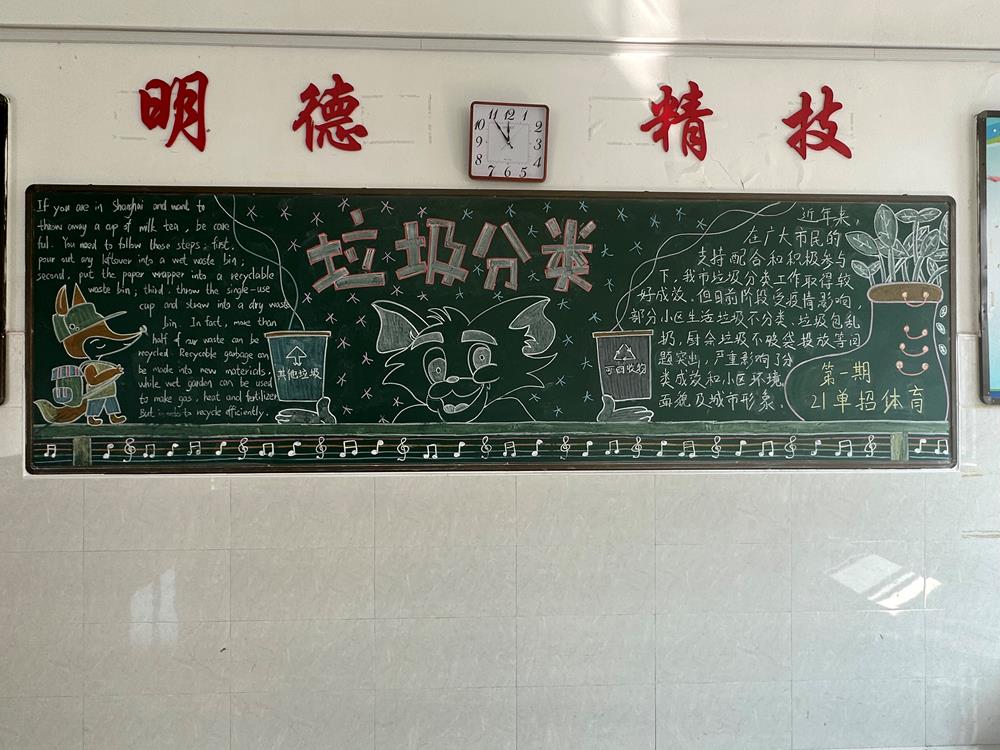 明德 精技
11 12 1
10 2
9 3
8 4
7 6 5
If you are in Shanghai and want to
throw away a cup of milk tea, be care
ful. You need to follow these steps: first,
pour out any leftover into a wet waste bin;
second, put the paper wrapper into a recyclable
waste bin; third: throw the single-use
cup and straw into a dry waste
bin. In fact, more than
half of our waste can be
recycled. Recycable garbage can
be made into new materials,
while wet garden can be used
to make gas, heat and fertilizer
But to recycle efficiently.
垃圾分类
其他垃圾
可回收物
近年来
在广大市民的
支持配合和积极参与
下,我市垃圾分类工作取得较
好成效,但目前阶段受疫情影响,
部分小区生活垃圾不分类、垃圾包乱
扔,厨余垃圾不破袋投放等问
题突出,严重影响了分
类成效和小区环境
面貌及城市形象。
第一期
21单招体育